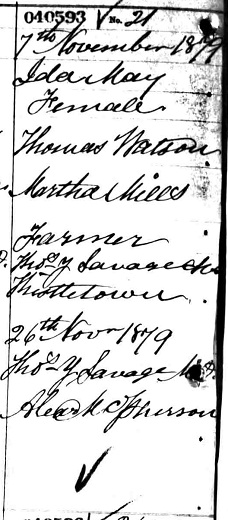 040593 No. 21
7th November 1879
Ida May
Female
Thomas Watson
Martha Mills
Farmer
Thos Y Savage
Thistletown
26th Novr 1879
Thos Y Savage M.D.
Alex McPherson